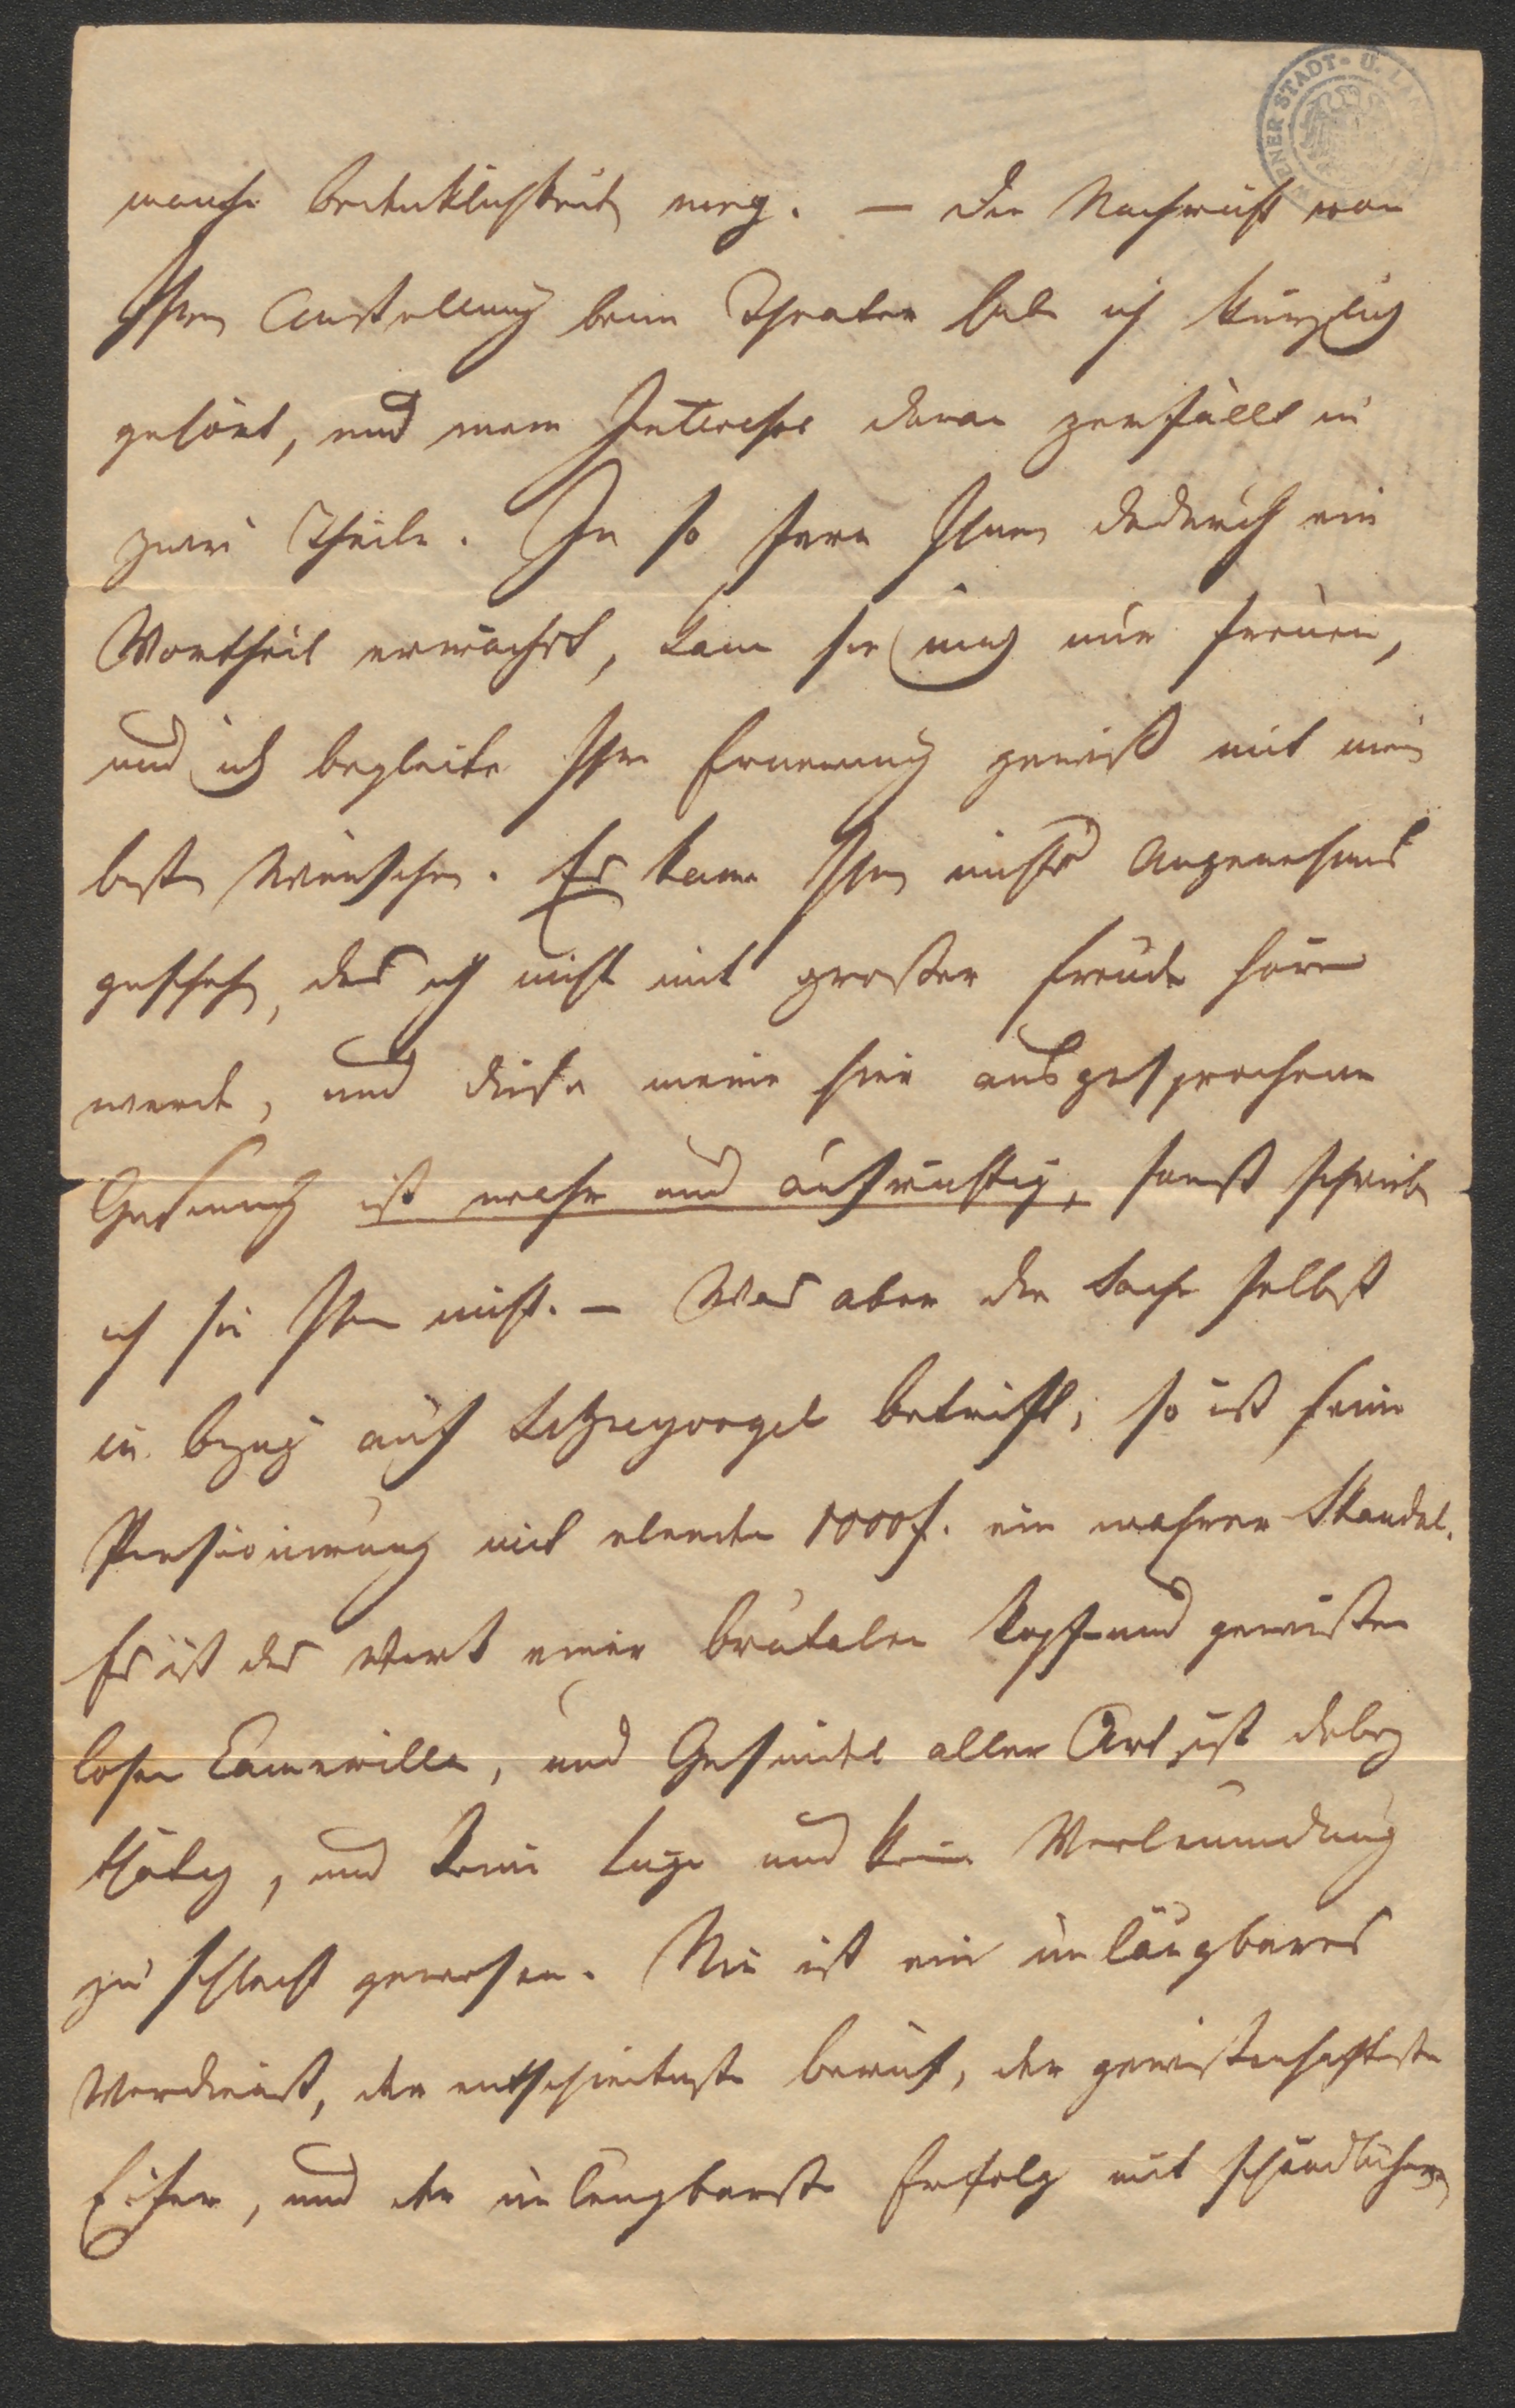 WIENER STADT- U. LAN
manche Bedenklichkeit weg. — Die Nachricht von
Ihrer Anstellung beim Theater hab ich kürzlich
gehört, und mein Interesse daran zerfällt in
zwei Theile. In so fern Ihnen dadurch ein
Vortheil erwächst, kann sie mich nur freuen,
und ich begleite Ihre Ernennung gewiß mit mein
besten Wünschen. Es kann Ihnen nichts Angenehmes
geschehen, das ich nicht mit großer Freude hören
werde, und diese meine hier ausgesprochene
Gesinnung ist wahr und aufrichtig, sonst schrieb
ich sie Ihnen nicht. — Was aber die Sache selbst
in Bezug auf Schreyvogel betrifft, so ist seine
Pensionirung mit elenden 1000 f. ein wahrer Skandal.
Es ist das Werk einer brutalen Kopf- und gewissen
losen Camarilla, und Gesindel aller Art ist dabey
thätig, und keine Lüge und keine Verleumdung
zu schlecht gewesen. Nie ist ein unläugbares
Verdienst, der entschiedenste Beruf, der gewissenhafteste
Eifer, und der unläugbarste Erfolg mit schändlicherm